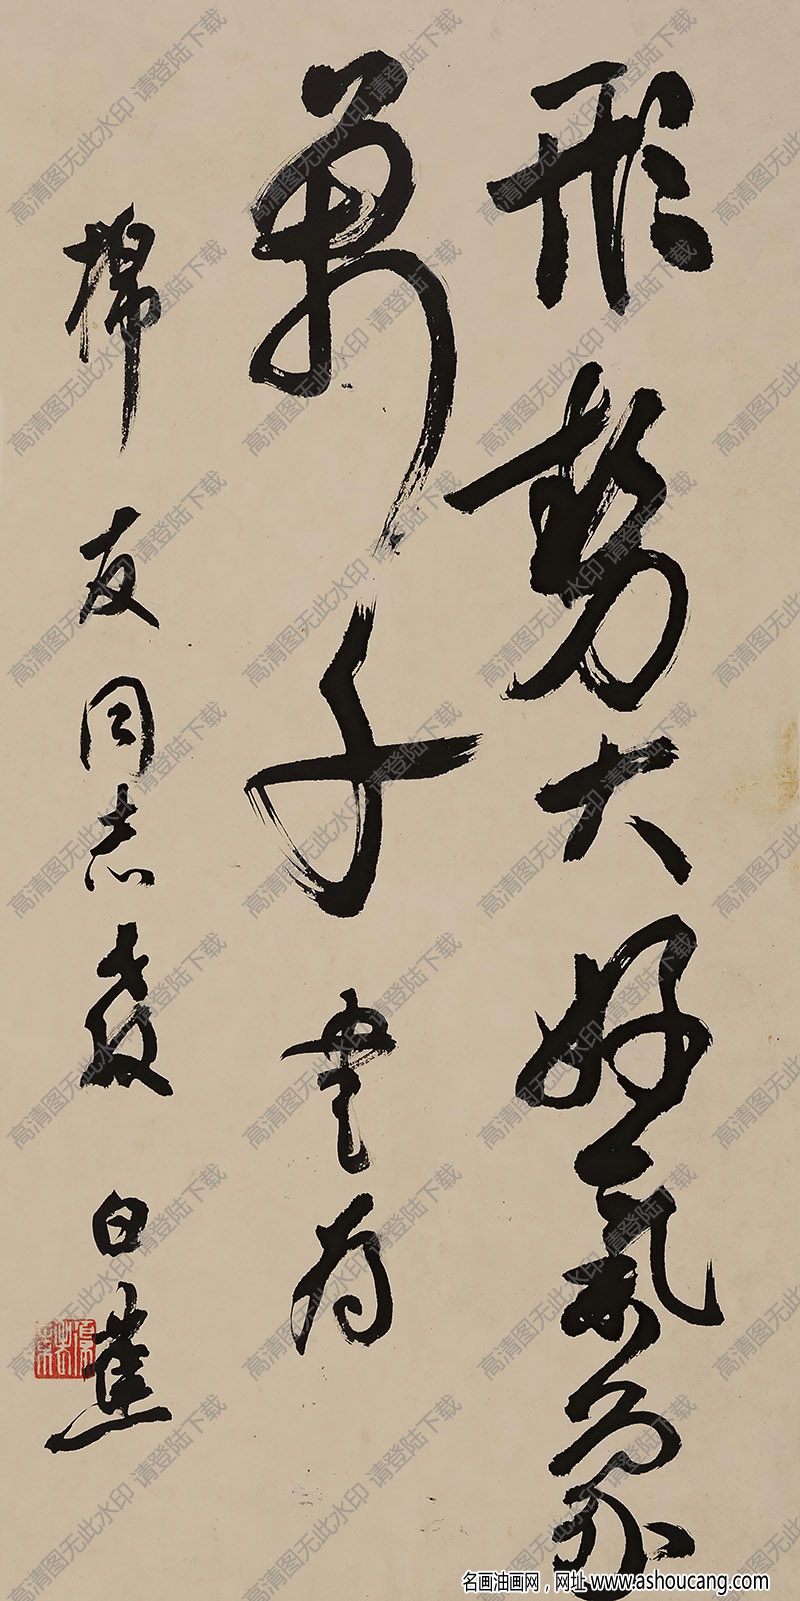 形勢大好氣象
萬千 書為
棉友同志教 白蕉
高清图无此水印 请登陆下载
名画油画网，网址 www.ashoucang.com